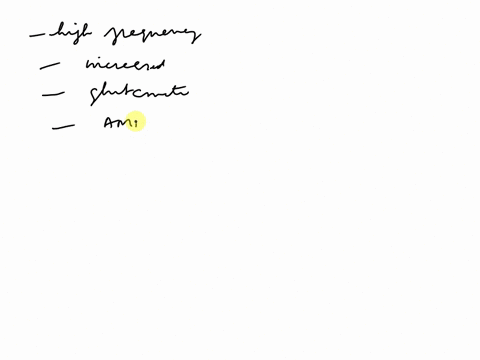 - high frequency
- increased
- glutamate
- AM